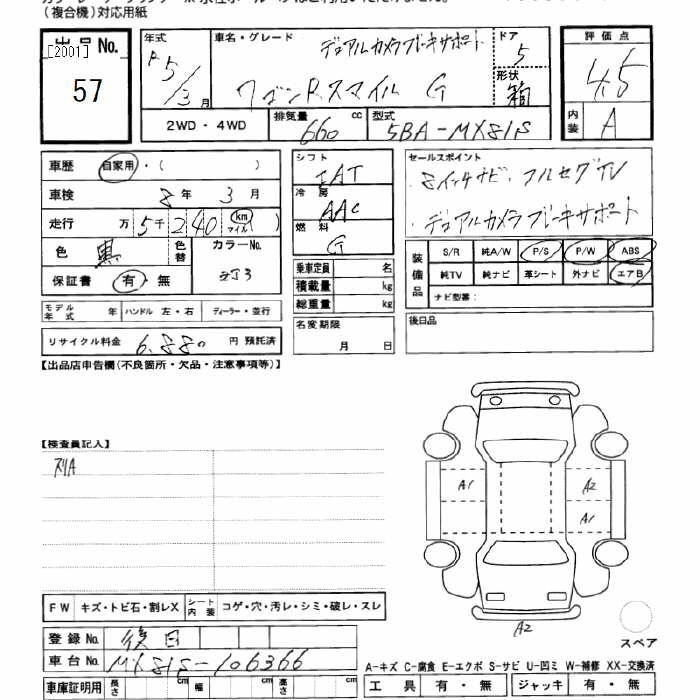 (複合機)対応用紙
出品No.
[2001]
57
年式
R5/3月
車名・グレード
デュアルカメラブレーキサポート
ワゴンRスマイル G
ドア
5
形状
箱
評価点
4.5
内装
A
2WD・4WD
排気量
660 cc
型式
5BA-MX81S
車歴 自家用・( )
車検 8年 3月
走行 万 5千 2 40 km マイル
色 黒 色替
カラーNo.
ZJ3
保証書 有・無
モデル年式 年 ハンドル 左・右 ディーラー・並行
リサイクル料金 6,880 円 預託済
シフト
IAT
冷房
AAC
燃料
G
乗車定員 名
積載量 kg
総重量 kg
名変期限
月 日
セールスポイント
8インチナビ・フルセグTV
・デュアルカメラブレーキサポート
装備品
S/R 純A/W P/S P/W ABS
純TV 純ナビ 革シート 外ナビ エアB
ナビ型番:
後日品
【出品店申告欄(不良箇所・欠品・注意事項等)】
【検査員記入】
スリA
A1
A2
A1
A2
スペア
FW キズ・トビ石・割レX シート内装 コゲ・穴・汚レ・シミ・破レ・スレ
登録No. 後日
車台No. MX81S-106366
車庫証明用 長さ cm 幅 cm 高さ cm
A-キズ C-腐食 E-エクボ S-サビ U-凹ミ W-補修 XX-交換済
工具 有・無 ジャッキ 有・無